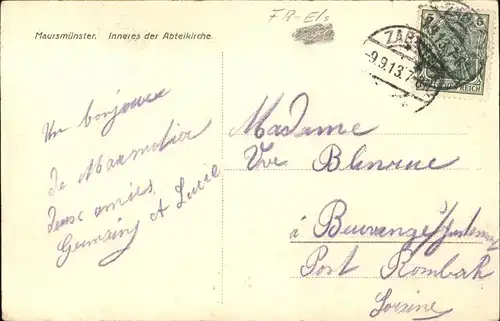 FR-Els
Maursmünster. Inneres der Abteikirche.
ZAB
-9.9.13.7-
5
REICH
Un bonjour
de Marmoutier
deux amies
Germaine et Lucie
Madame
Vve
à Beuvange
Post Rombach
Lorraine